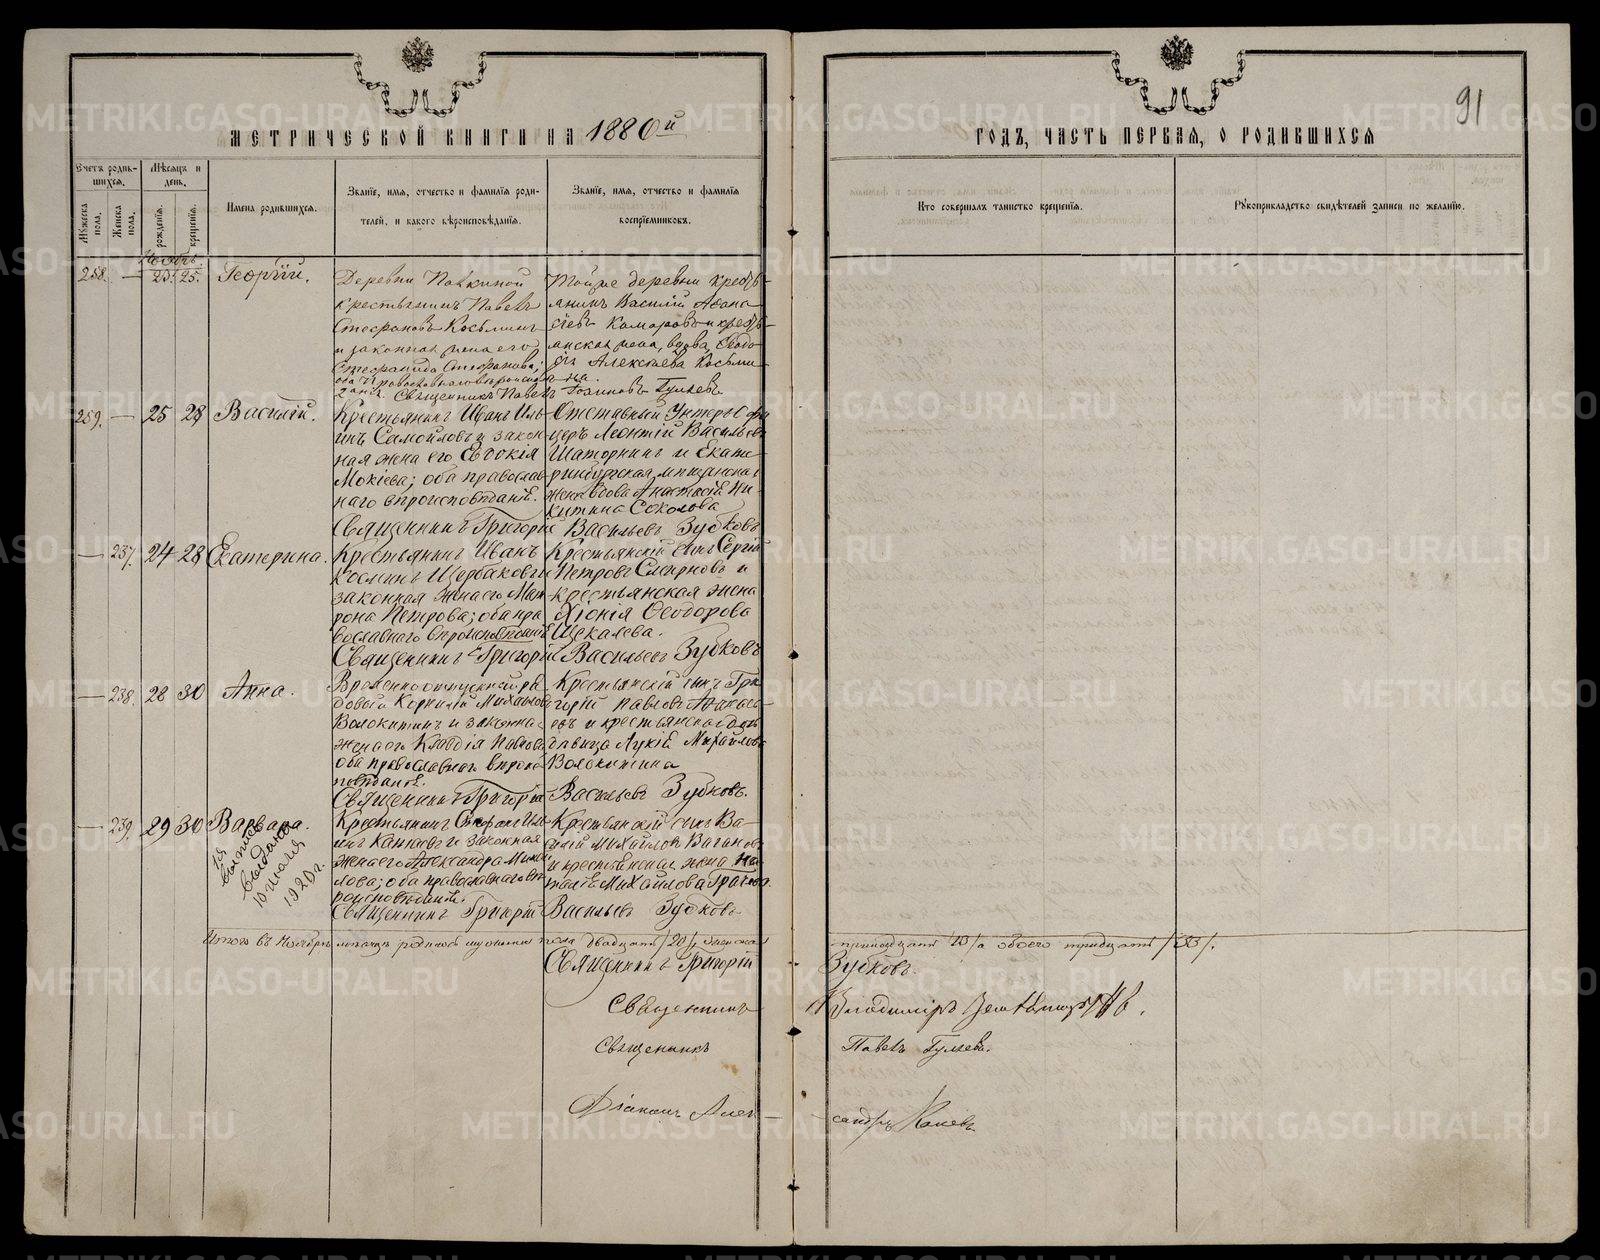 91
МЕТРИЧЕСКОЙ КНИГИ НА 1880й
ГОДЪ, ЧАСТЬ ПЕРВАЯ, О РОДИВШИХСЯ
Счетъ родив-
шихся.
Мѣсяцъ и
день.
Мужеска
пола.
Женска
пола.
рожденія.
крещенія.
Имена родившихся.
Званіе, имя, отчество и фамилія роди-
телей, и какого вѣроисповѣданія.
Званіе, имя, отчество и фамилія
воспріемниковъ.
Кто совершалъ таинство крещенія.
Рукоприкладство свидѣтелей записи по желанію.
Ноябрь
258. — 23. 25. Георгій.
Деревни
крестьянинъ Павелъ
Стефановъ Косьминъ
и законная жена его
Стефанида Стефанова;
оба православнаго
Той же деревни кресть-
янинъ Василій Афана-
сіевъ Комаровъ и кресть-
янская жена, вдова, Ѳеодо-
Алексѣева Косьми-
на.
Священникъ Павелъ Гуляевъ
259. — 25 28 Василій.
Крестьянинъ Иванъ Иль-
инъ Самойловъ и закон-
ная жена его Евдокія
Мокіева; оба православ-
наго вѣроисповѣданія.
Отставный Унтеръ Офи-
церъ Леонтій Васильевъ
Шаторнинъ и Екате-
ринбургская мѣщанская
жена вдова Анастасія Ни-
китина Соколова
Священникъ Григорій Васильевъ Зубковъ
— 237. 24 28 Екатерина.
Крестьянинъ Иванъ
Косминъ Щербаковъ и
законная жена его Мат-
рона Петрова; оба пра-
вославнаго вѣроисповѣданія
Крестьянскій сынъ Сергій
Петровъ Смирновъ и
крестьянская жена
Хіонія Ѳеодорова
Щекалева.
Священникъ Григорій Васильевъ Зубковъ
— 238. 28 30 Анна.
Временно отпускной ря-
довой Корнилій Михайловъ
Волокитинъ и законная
жена его Клавдія Павлова
оба православнаго вѣроис-
повѣданія.
Крестьянскій сынъ Гри-
горій Павловъ Афанась-
евъ и крестьянская дочь
дѣвица Лукія Михайлова
Волокитина
Священникъ Григорій Васильевъ Зубковъ.
— 239. 29 30 Варвара.
Крестьянинъ Стефанъ Иль-
инъ и законная
жена его Александра Михай-
лова; оба православнаго вѣ-
роисповѣданія.
Крестьянскій сынъ Ва-
силій Михайловъ Вагановъ
и крестьянская жена На-
талія Михайлова Грачева.
Священникъ Григорій Васильевъ Зубковъ
выпись
выдана
10 іюля
1920 г.
Итого въ Ноябрѣ мѣсяцѣ родилось мужеска пола двадцать /20/, женска
/10/ а обоего тридцать /30/.
Священникъ Григорій Зубковъ.
Священникъ Владиміръ
Священникъ Павелъ Гуляевъ.
Діаконъ Алек-
сандръ
METRIKI.GASO-URAL.RU